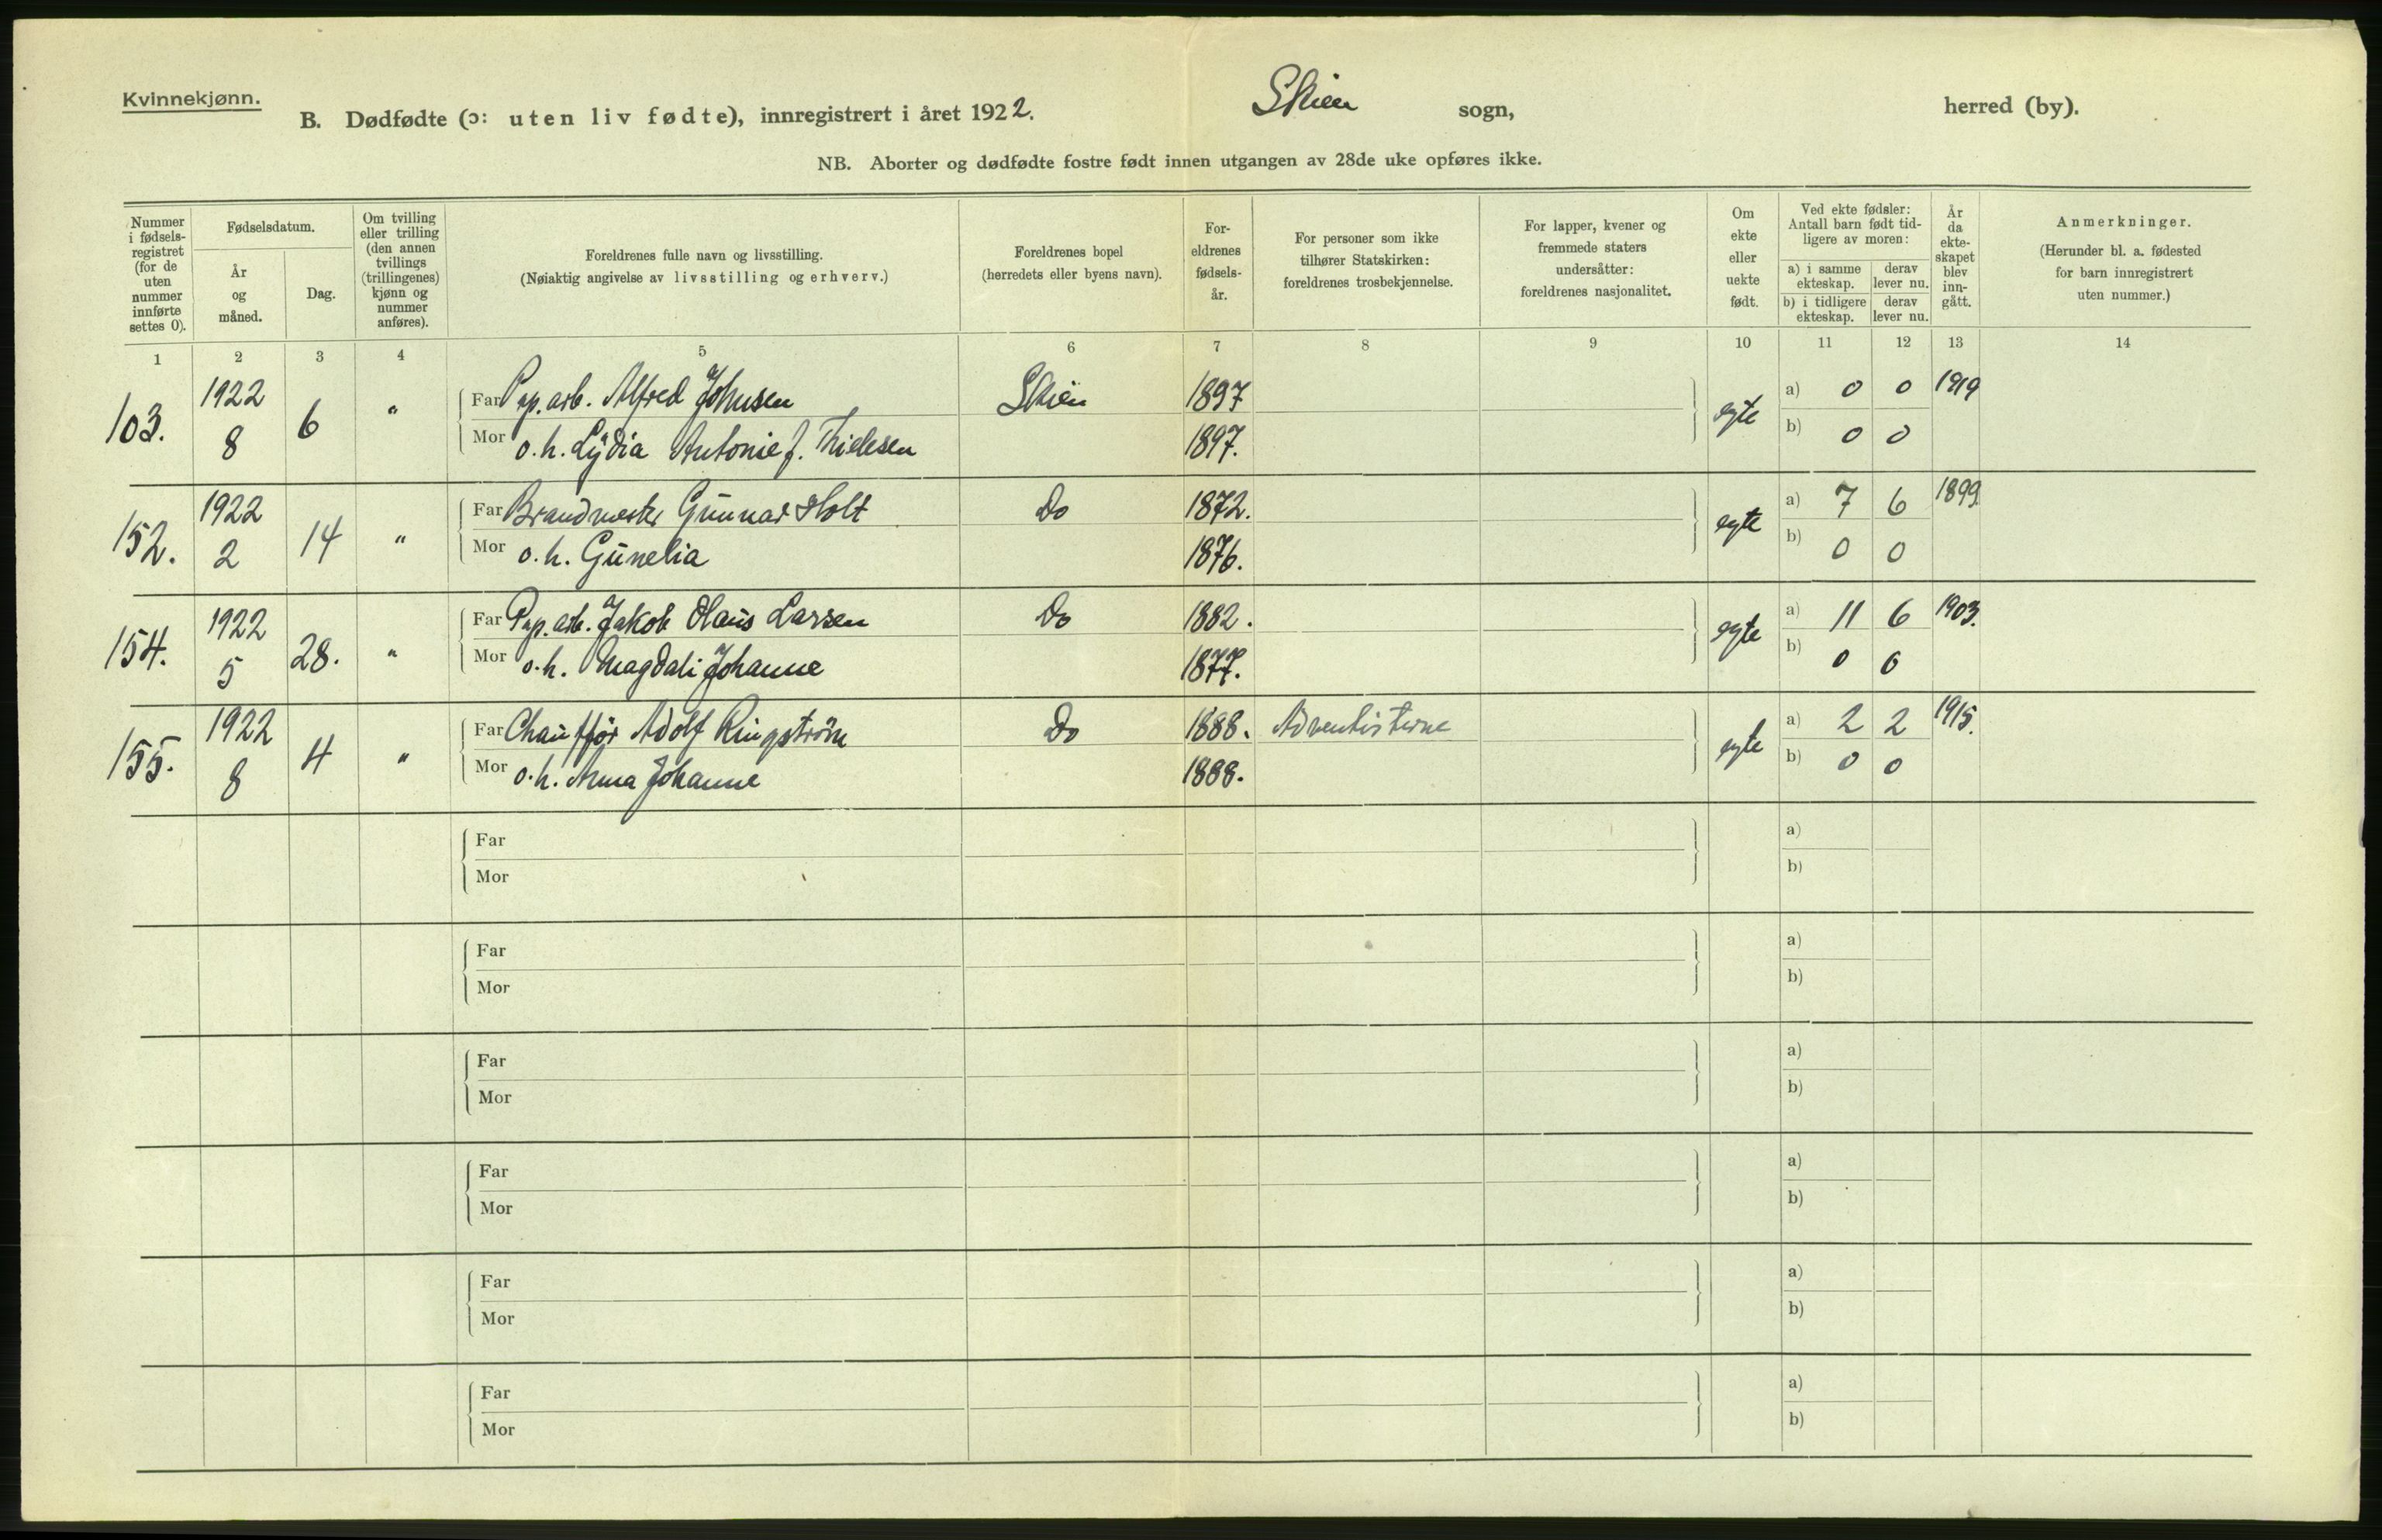 Kvinnekjønn.
B. Dødfødte (ɔ: uten liv fødte), innregistrert i året 1922. Skien sogn, herred (by).
NB. Aborter og dødfødte fostre født innen utgangen av 28de uke opføres ikke.
Nummer i fødsels-registret (for de uten nummer innførte settes 0).
Fødselsdatum.
År og måned.
Dag.
Om tvilling eller trilling (den annen tvillings (trillingenes) kjønn og nummer anføres).
Foreldrenes fulle navn og livsstilling.
(Nøiaktig angivelse av livsstilling og erhverv.)
Foreldrenes bopel
(herredets eller byens navn).
For-eldrenes fødsels-år.
For personer som ikke tilhører Statskirken: foreldrenes trosbekjennelse.
For lapper, kvener og fremmede staters undersåtter: foreldrenes nasjonalitet.
Om ekte eller uekte født.
Ved ekte fødsler: Antall barn født tid-ligere av moren:
a) i samme ekteskap. derav lever nu.
b) i tidligere ekteskap. derav lever nu.
År da ekte-skapet blev inn-gått.
Anmerkninger.
(Herunder bl. a. fødested for barn innregistrert uten nummer.)
1 2 3 4 5 6 7 8 9 10 11 12 13 14
103. 1922 8 6 " Far Pap. arb. Alfred Johnsen Skien 1897 egte a) 0 0 1919
Mor o. h. Lydia Antonie f. Thielesen 1897. b) 0 0
152. 1922 2 14 " Far Brandmester Gunnar Holt Do 1872. egte a) 7 6 1899.
Mor o. h. Gunelia 1876. b) 0 0
154. 1922 5 28. " Far Pap. arb. Jakob Olaus Larsen Do 1882. egte a) 11 6 1903.
Mor o. h. Magdali Johanne 1877. b) 0 0
155. 1922 8 4 " Far Chauffør Adolf Ringstrøm Do 1888. Adventisterne egte a) 2 2 1915.
Mor o. h. Anna Johanne 1888. b) 0 0
Far a)
Mor b)
Far a)
Mor b)
Far a)
Mor b)
Far a)
Mor b)
Far a)
Mor b)
Far a)
Mor b)